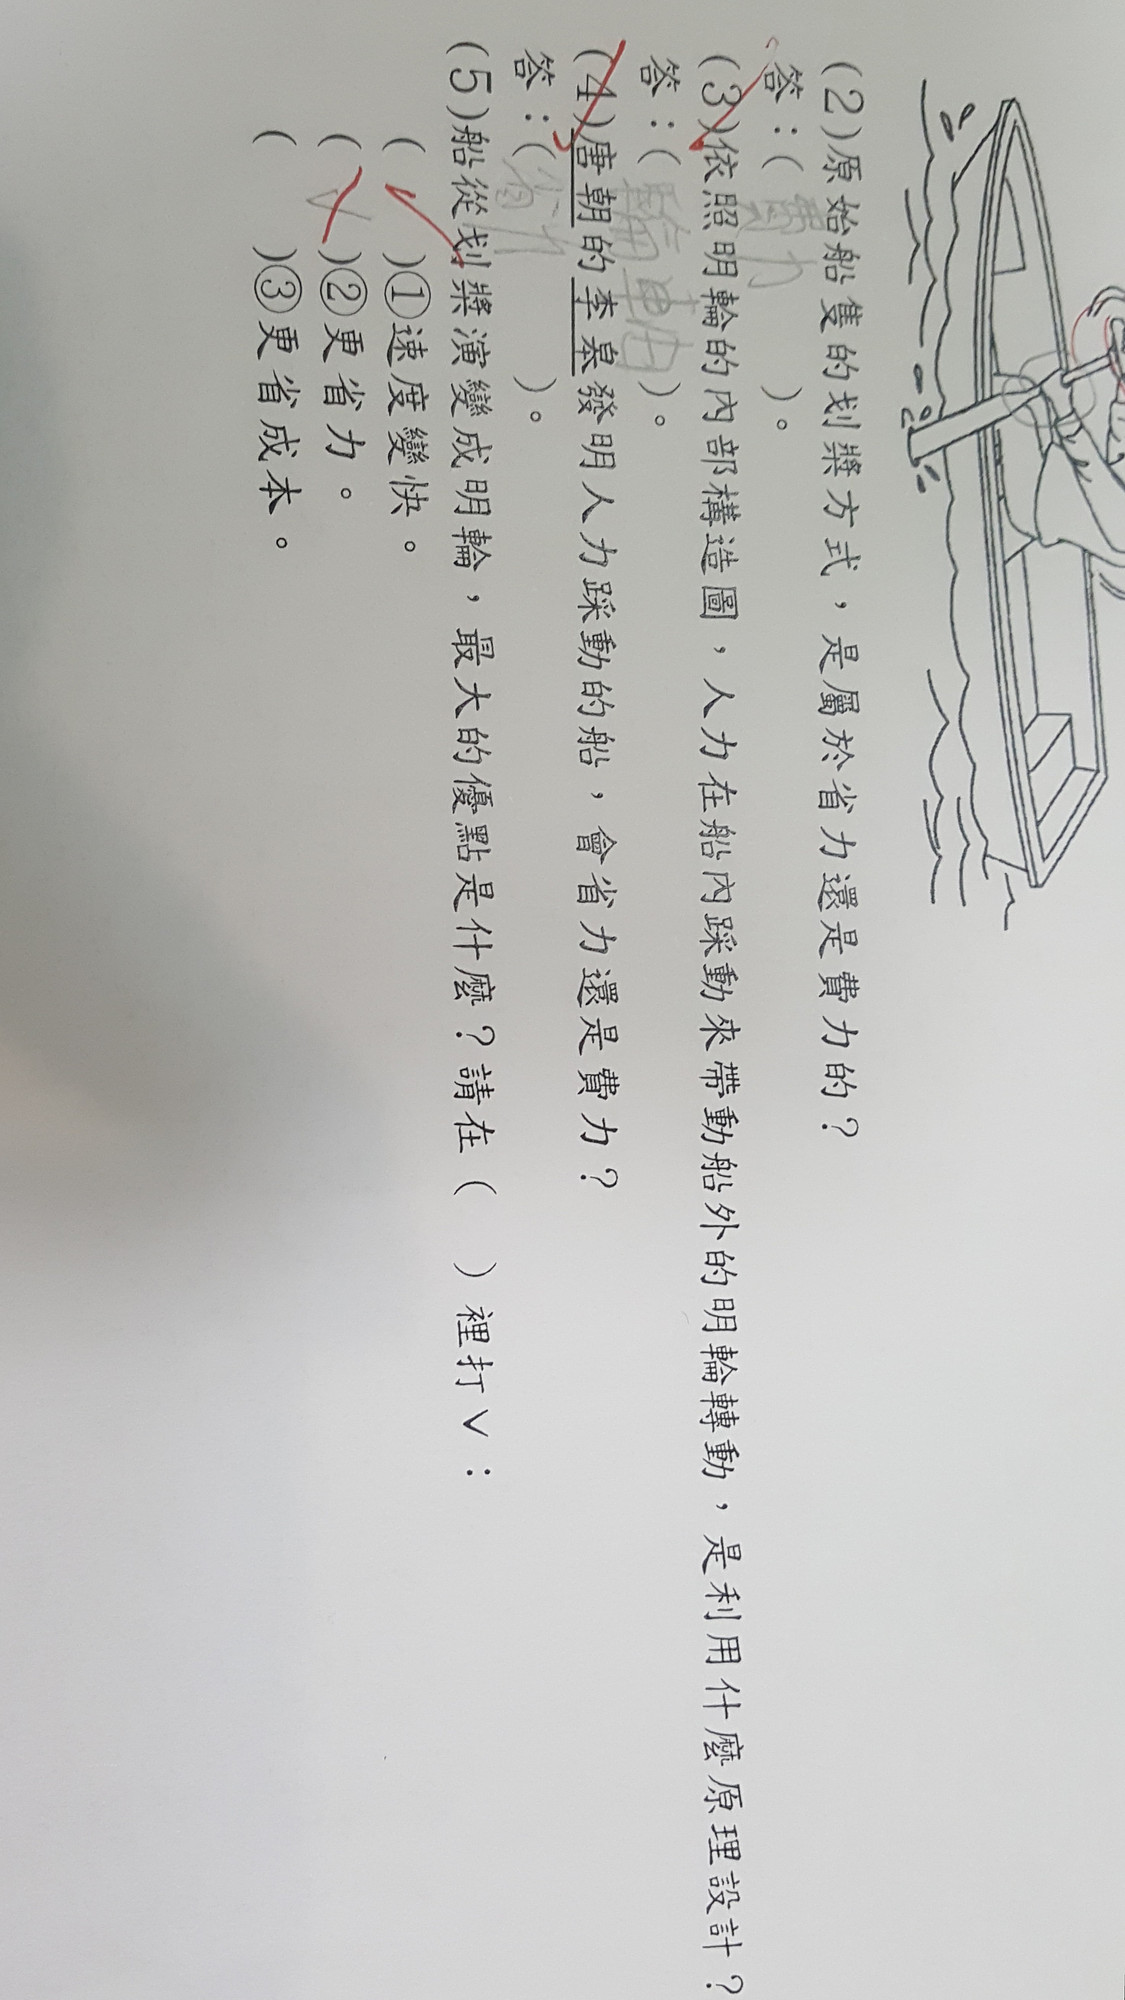 (2)原始船隻的划槳方式，是屬於省力還是費力的？
答：( 費力 )。
(3)依照明輪的內部構造圖，人力在船內踩動來帶動船外的明輪轉動，是利用什麼原理設計？
答：( 輪軸 )。
(4)唐朝的李皋發明人力踩動的船，會省力還是費力？
答：( 省力 )。
(5)船從划槳演變成明輪，最大的優點是什麼？請在（ ）裡打∨：
( ✓ )①速度變快。
( ∨ )②更省力。
( )③更省成本。